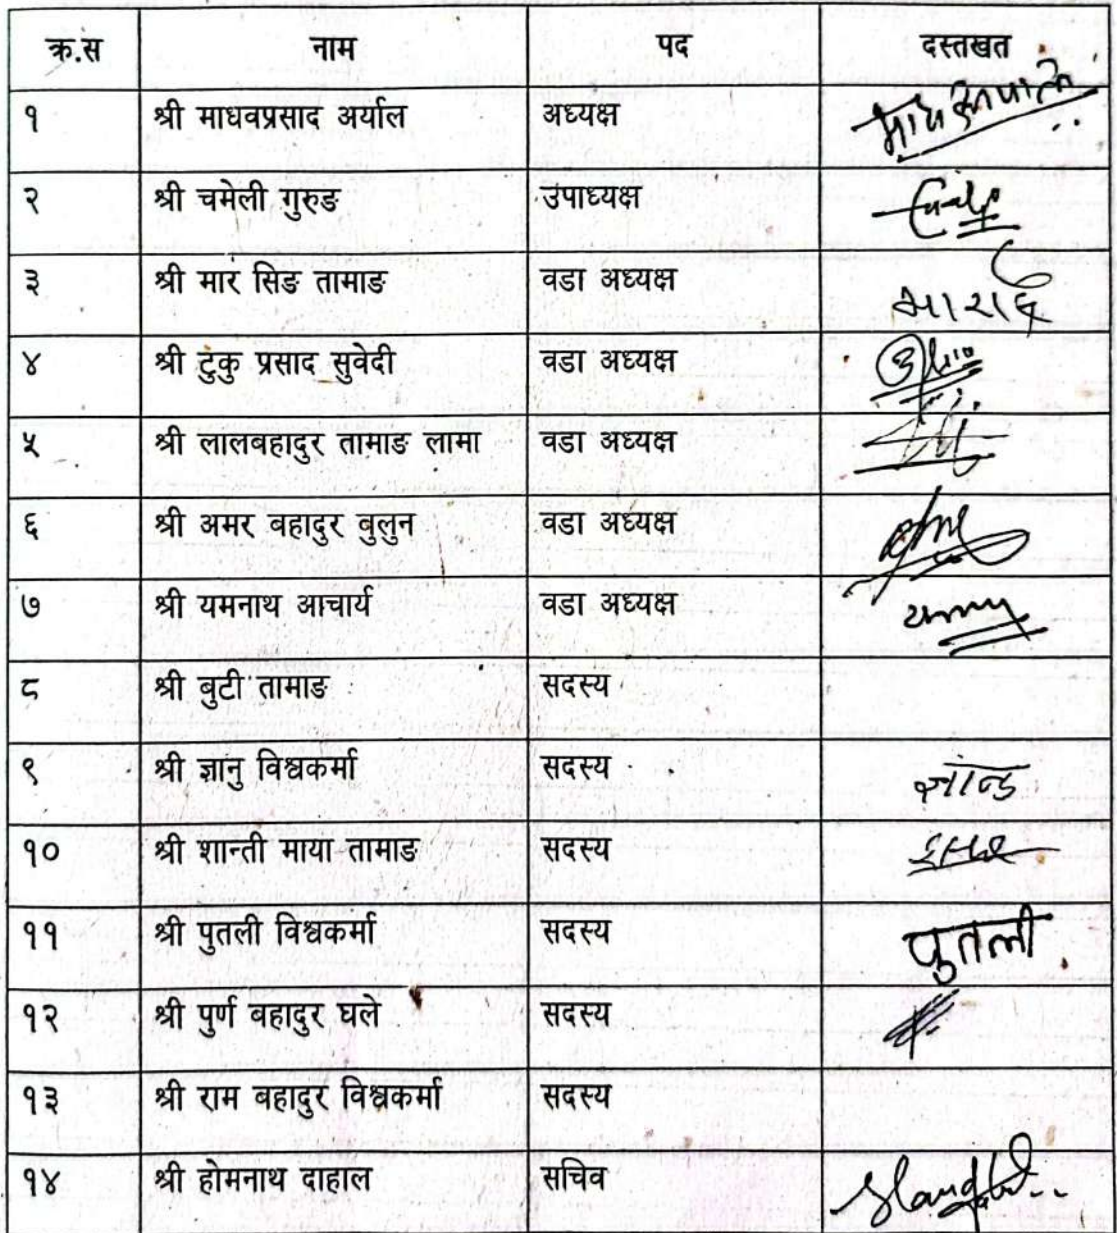 क्र.स नाम पद दस्तखत
१ श्री माधवप्रसाद अर्याल अध्यक्ष
२ श्री चमेली गुरुङ उपाध्यक्ष
३ श्री मार सिङ तामाङ वडा अध्यक्ष
४ श्री टुंकु प्रसाद सुवेदी वडा अध्यक्ष
५ श्री लालबहादुर तामाङ लामा वडा अध्यक्ष
६ श्री अमर बहादुर बुलुन वडा अध्यक्ष
७ श्री यमनाथ आचार्य वडा अध्यक्ष
८ श्री बुटी तामाङ सदस्य
९ श्री ज्ञानु विश्वकर्मा सदस्य
१० श्री शान्ती माया तामाङ सदस्य
११ श्री पुतली विश्वकर्मा सदस्य पुतली
१२ श्री पुर्ण बहादुर घले सदस्य
१३ श्री राम बहादुर विश्वकर्मा सदस्य
१४ श्री होमनाथ दाहाल सचिव